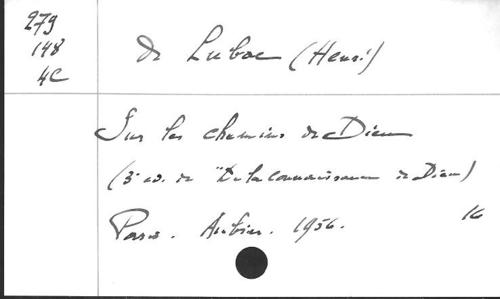 279
148
4C
de Lubac (Henri)
Sur les chemins de Dieu
(3e éd. de "De la connaissance de Dieu)
Paris. Aubier. 1956.
16